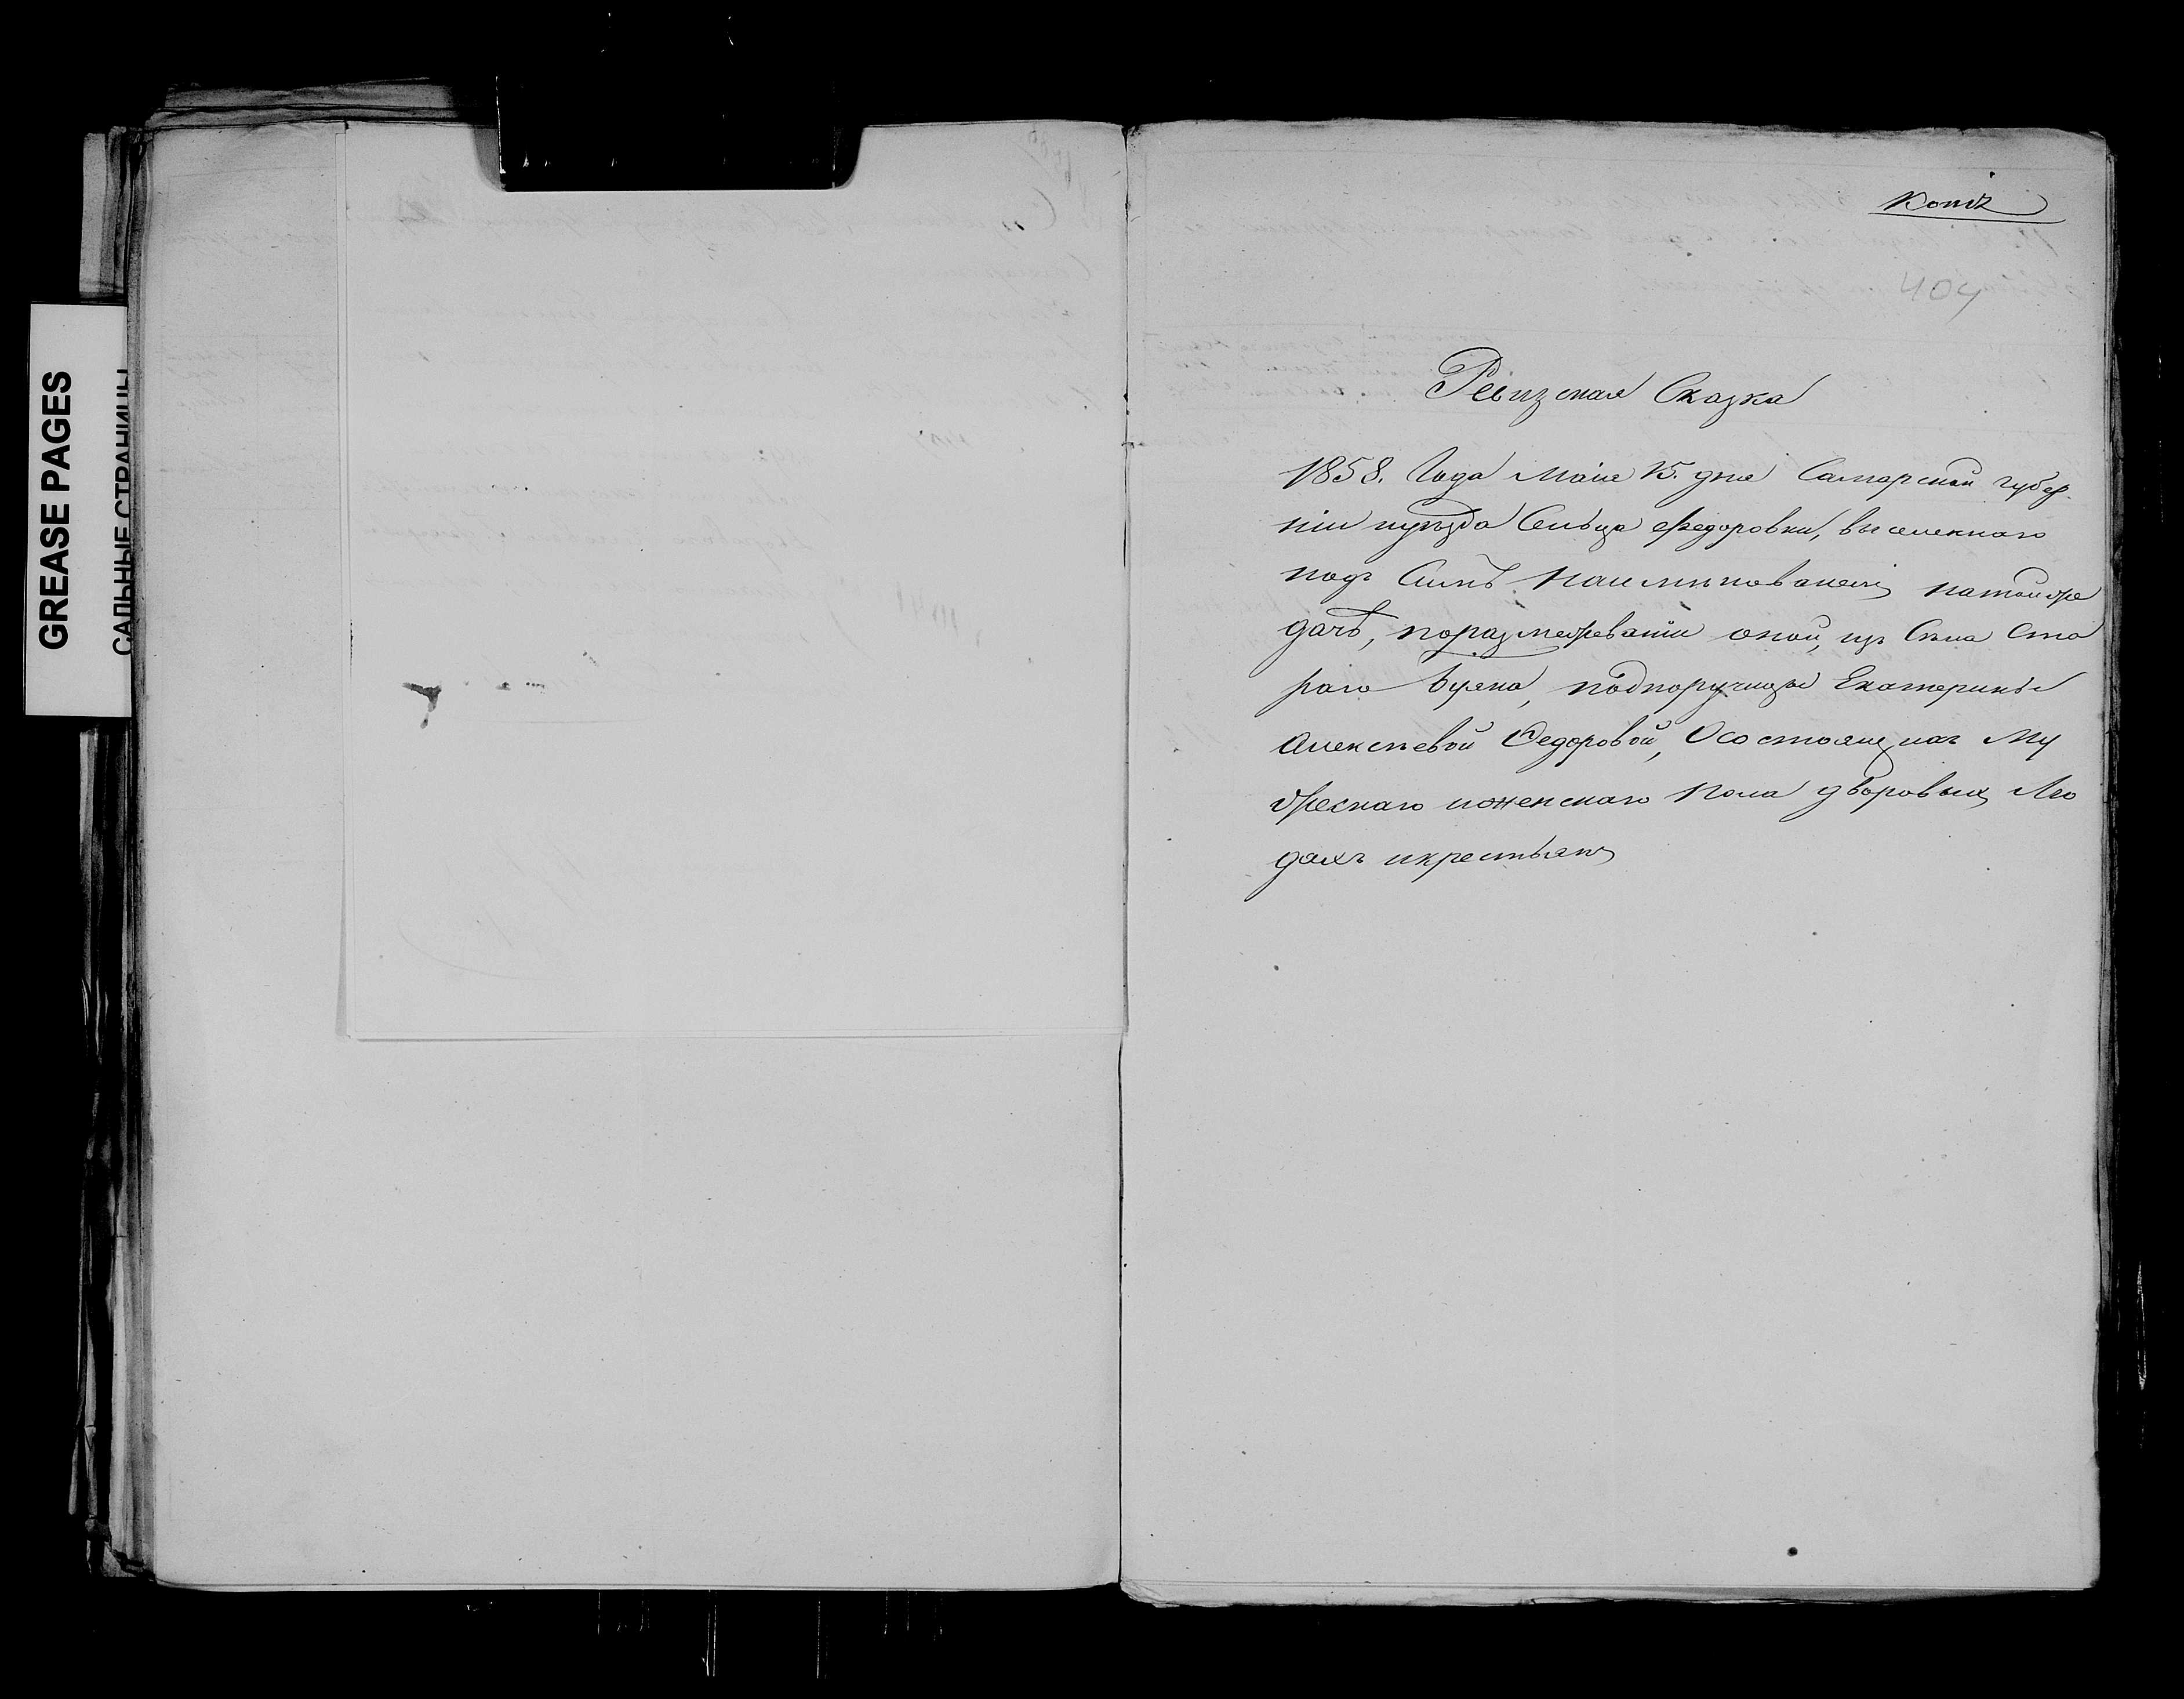 GREASE PAGES
САЛЬНЫЕ СТРАНИЦЫ
Копія
404
Ревизская Сказка
1858. Года Маія 15. дня Самарской губер
ніи иуѣзда Сельца Федоровки, выселеннаго
подъ Симъ Наимѣнованіемъ натойже
дачѣ, поразмежеваніи оной, изъ Села Ста
раго Буяна, подпоручицы Екатерины
Алексѣевой Федоровой, Осостоящихъ Му
жескаго иженскаго пола дворовыхъ Лю
дяхъ икрестьянъ